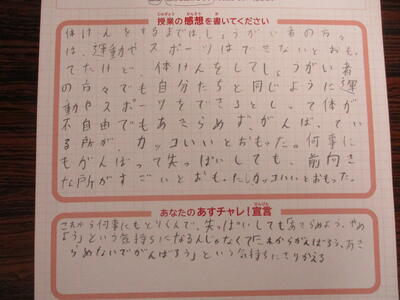 授業の感想を書いてください
じゅぎょう かんそう か
体けんをするまでは、しょうがい者の方々
は、運動やスポーツはできないとおも。
てたけど、体けんをしてしょうがい者
の方々でも自分たちと同じように運
動やスポーツをできるとしって体が
不自由でもあきらめず、がんば、てい
る所が、カッコいいとおもった。何事に
もがんばって失っぱいしても、前向き
な所がすごいとおも。たしカッコいいとおもった。
あなたのあすチャレ!宣言
せんげん
これから何事にもとりくんで、失っぱいしても「あきらめよう、やめ
よう」という気持ちになるんじゃなくて「これからがんばろう、あき
らめないでがんばろう」という気持ちにきりかえる